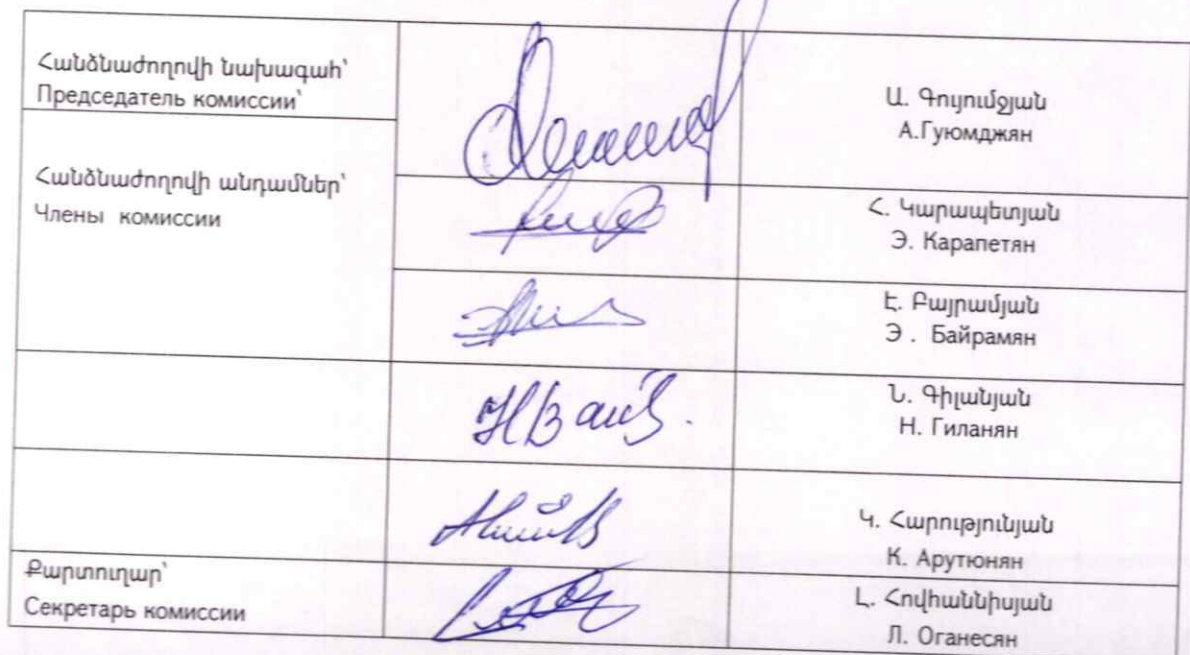 Հանձնաժողովի նախագահ՝
Председатель комиссии՝
Ա. Գույումջյան
А.Гуюмджян
Հանձնաժողովի անդամներ՝
Члены комиссии
Հ. Կարապետյան
Э. Карапетян
Է. Բայրամյան
Э . Байрамян
Ն. Գիլանյան
Н. Гиланян
Կ. Հարությունյան
К. Арутюнян
Քարտուղար՝
Секретарь комиссии
Լ. Հովհաննիսյան
Л. Оганесян